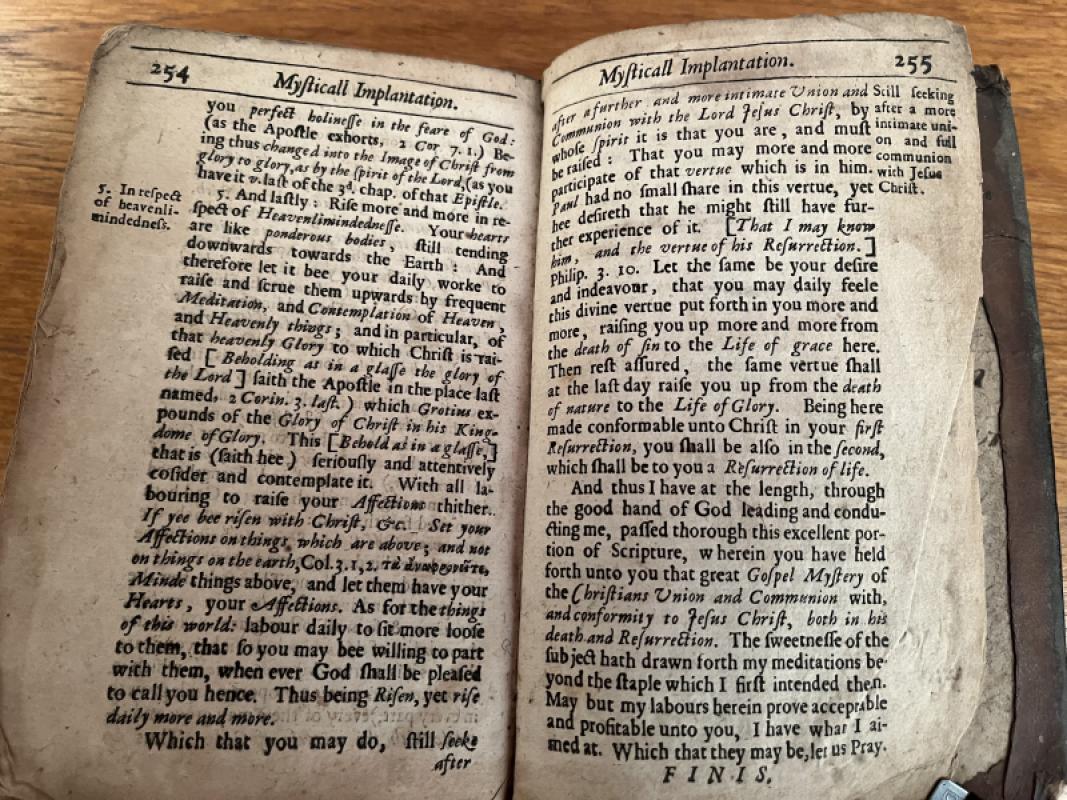 254
Mysticall Implantation.
you perfect holinesse in the feare of God:
(as the Apostle exhorts, 2 Cor 7. 1.) Be-
ing thus changed into the Image of Christ from
glory to glory, as by the spirit of the Lord, (as you
have it v. last of the 3d. chap. of that Epistle.
5. In respect
of heavenli-
mindednesse.
5. And lastly: Rise more and more in re-
spect of Heavenlimindednesse. Your hearts
are like ponderous bodies, still tending
downwards towards the Earth: And
therefore let it bee your daily worke to
raise and scrue them upwards by frequent
Meditation, and Contemplation of Heaven,
and Heavenly things; and in particular, of
that heavenly Glory to which Christ is rai-
sed [Beholding as in a glasse the glory of
the Lord] saith the Apostle in the place last
named, 2 Corin. 3. last.) which Grotius ex-
pounds of the Glory of Christ in his King-
dome of Glory. This [Behold as in a glasse,]
that is (saith hee) seriously and attentively
cosider and contemplate it. With all la-
bouring to raise your Affections thither.
If yee bee risen with Christ, &c. Set your
Affections on things, which are above; and not
on things on the earth, Col. 3. 1, 2.
Minde things above, and let them have your
Hearts, your Affections. As for the things
of this world: labour daily to sit more loose
to them, that so you may bee willing to part
with them, when ever God shall be pleased
to call you hence. Thus being Risen, yet rise
daily more and more.
Which that you may do, still seeke
after
Mysticall Implantation.
255
after a further and more intimate Union and
Communion with the Lord Jesus Christ, by
whose spirit it is that you are, and must
be raised: That you may more and more
participate of that vertue which is in him.
Paul had no small share in this vertue, yet
hee desireth that he might still have fur-
ther experience of it. [That I may know
him, and the vertue of his Resurrection.]
Philip. 3. 10. Let the same be your desire
and indeavour, that you may daily feele
this divine vertue put forth in you more and
more, raising you up more and more from
the death of sin to the Life of grace here.
Then rest assured, the same vertue shall
at the last day raise you up from the death
of nature to the Life of Glory. Being here
made conformable unto Christ in your first
Resurrection, you shall be also in the second,
which shall be to you a Resurrection of life.
Still seeking
after a more
intimate uni-
on and full
communion
with Jesus
Christ.
And thus I have at the length, through
the good hand of God leading and condu-
cting me, passed thorough this excellent por-
tion of Scripture, wherein you have held
forth unto you that great Gospel Mystery of
the Christians Union and Communion with,
and conformity to Jesus Christ, both in his
death and Resurrection. The sweetnesse of the
subject hath drawn forth my meditations be-
yond the staple which I first intended then.
May but my labours herein prove acceptable
and profitable unto you, I have what I ai-
med at. Which that they may be, let us Pray.
FINIS.